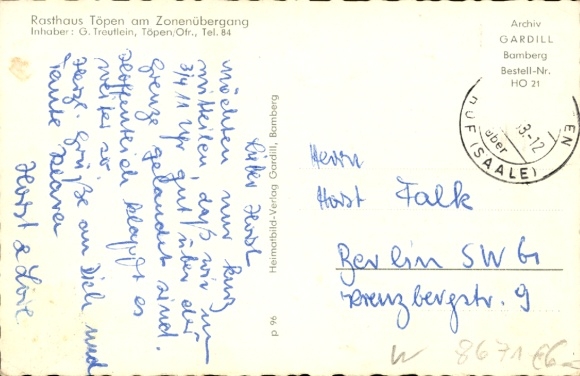 Rasthaus Töpen am Zonenübergang
Inhaber: G. Treutlein, Töpen/Ofr., Tel. 84
Archiv
GARDILL
Bamberg
Bestell-Nr.
HO 21
Lieber Horst
möchten nur kurz
mitteilen, daß wir um
3/4 11 Uhr gut über der
Grenze gelandet sind.
Hoffentlich klappt es
weiter so.
Herzl. Grüße an Dich und
Tante Klara
Horst & Lore
p 96 Heimatbild-Verlag Gardill, Bamberg
HOF (SAALE)
Herrn
Horst Falk
Berlin SW 61
Kreuzbergstr. 9